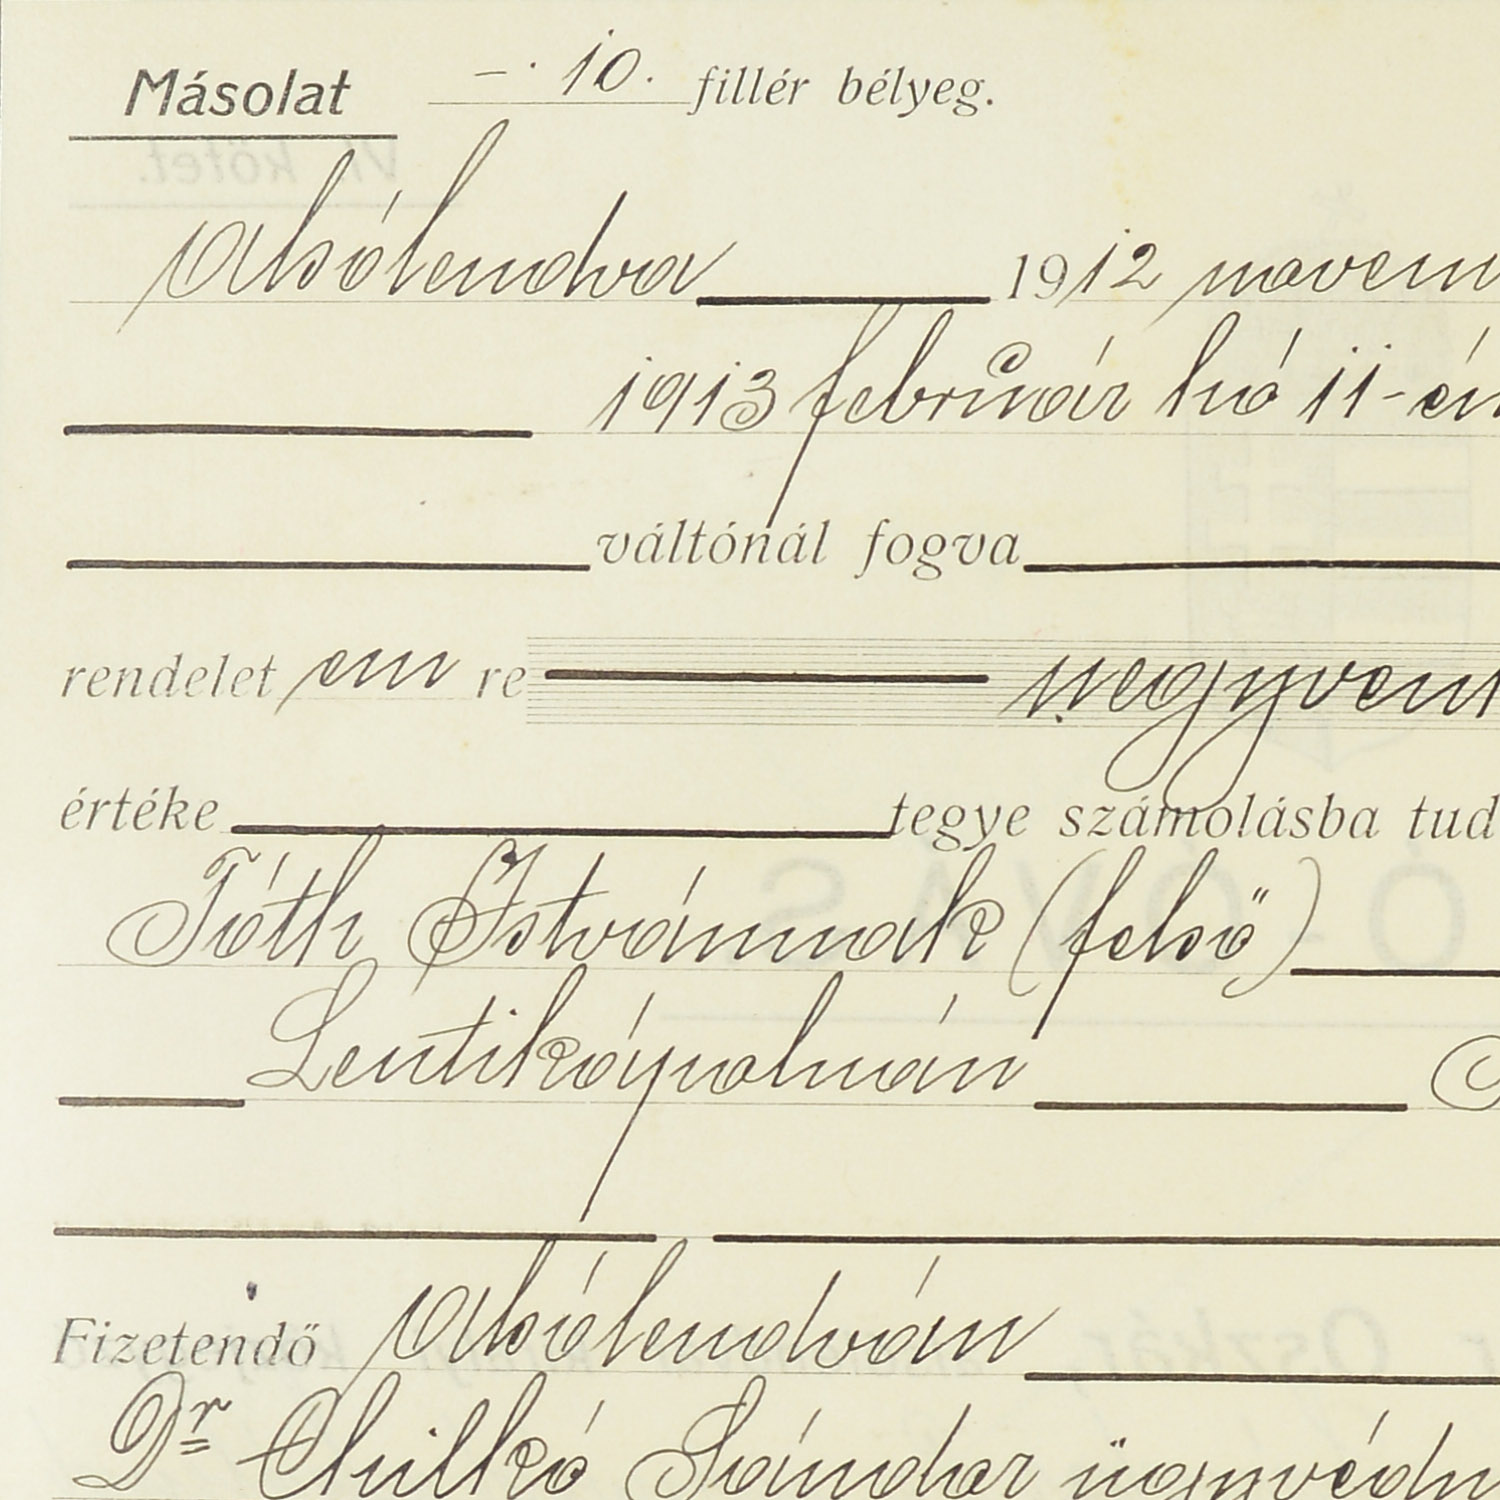 Másolat —· 10. fillér bélyeg.
Alsólendva 1912 novem
1913 február hó 11-én
váltónál fogva
rendelet em re negyven
értéke tegye számolásba tud
Tóth Istvánnak (felső)
Lentikápolnán
Fizetendő Alsólendván
Dr Chilkó Sándor ügyvédn